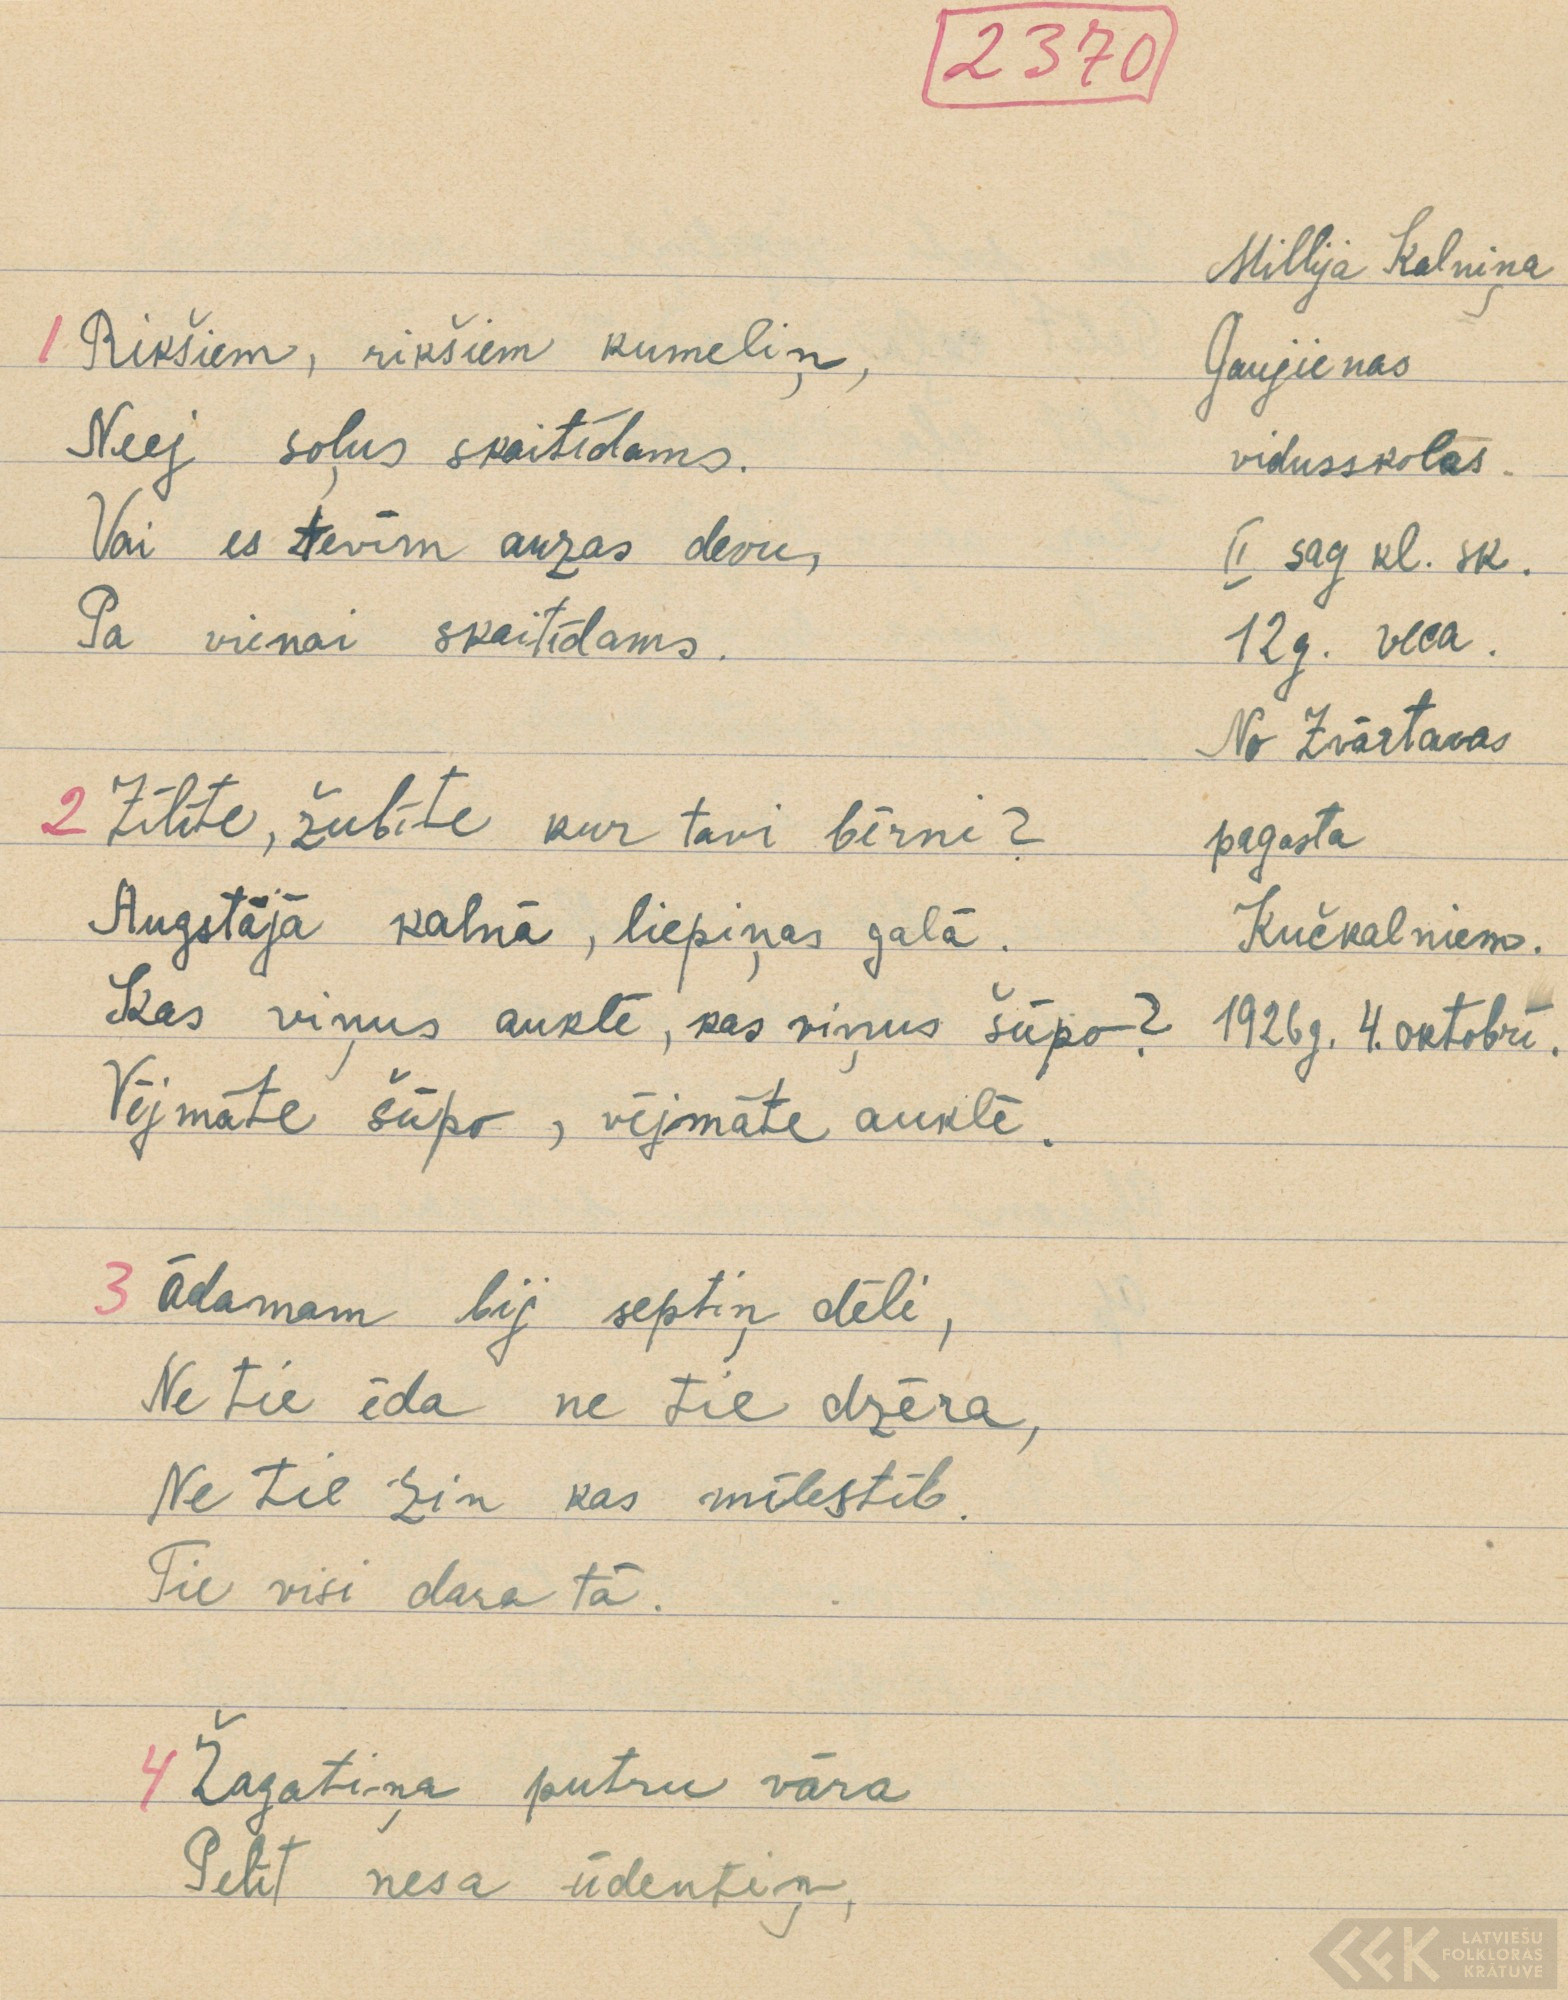 2370
Millija Kalniņa
Gaujienas
vidusskolas
II sag kl. sk.
12g. veca.
No Zvārtavas
pagasta
Kučkalniem.
1926g. 4. oktobrī.
1 Rikšiem, rikšiem kumeliņ,
Neej soļus skaitīdams.
Vai es tevīm auzas devu,
Pa vienai skaitīdams.
2 Zīlīte, žubīte kur tavi bērni?
Augstājā kalnā, liepiņas galā.
Kas viņus auklē, kas viņus šūpo?
Vējmāte šūpo, vējmāte auklē.
3 Ādamam bij septiņ dēli,
Ne tie ēda ne tie dzēra,
Ne tie zin kas mīlestīb.
Tie visi dara tā.
4 Žagatiņa putru vāra
Pelīt nesa ūdentiņ,
LATVIEŠU
FOLKLORAS
KRĀTUVE